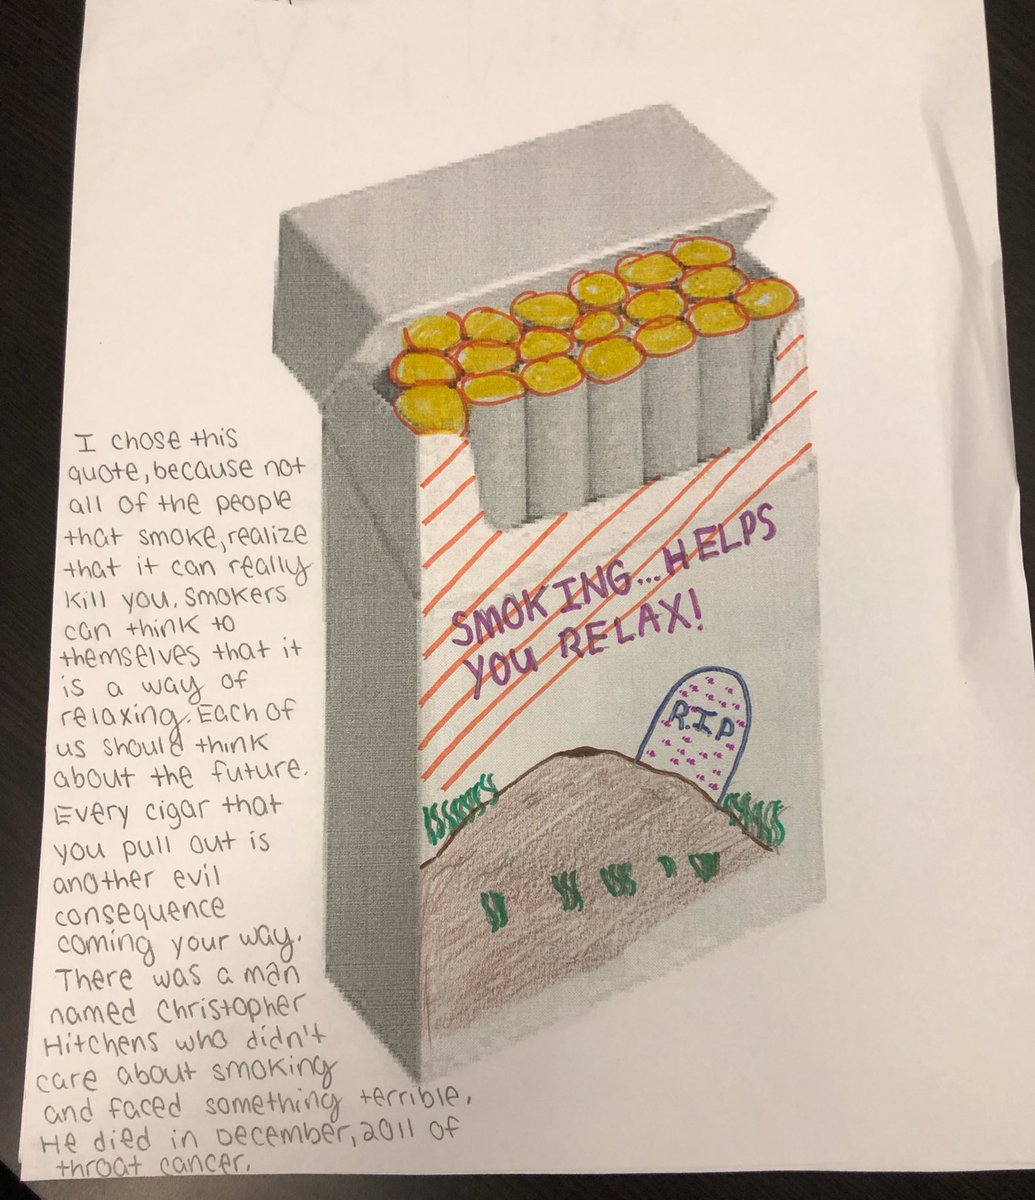 I chose this
quote, because not
all of the people
that smoke, realize
that it can really
kill you. Smokers
can think to
themselves that it
is a way of
relaxing. Each of
us should think
about the future.
Every cigar that
you pull out is
another evil
consequence
coming your way.
There was a man
named Christopher
Hitchens who didn't
care about smoking
and faced something terrible.
He died in December, 2011 of
throat cancer.
SMOKING...HELPS
YOU RELAX!
R.I.P